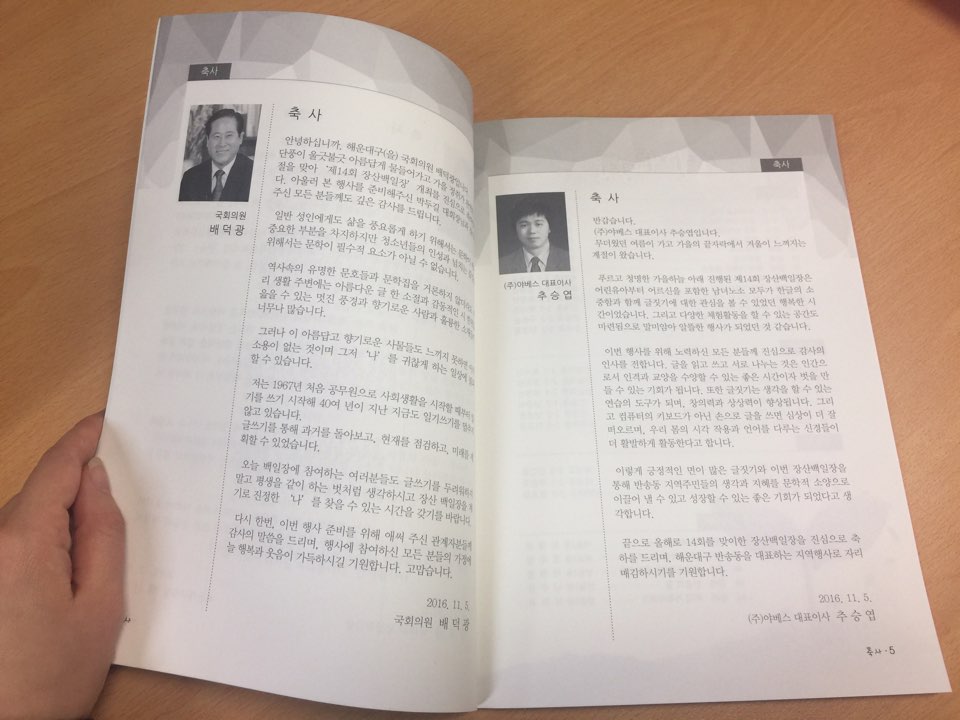 축사
축 사
국회의원
배 덕 광
안녕하십니까. 해운대구(을) 국회의원 배덕광입니다.
단풍이 울긋불긋 아름답게 물들어가고 가을 정취가
절을 맞아 '제14회 장산백일장' 개최를 진심으로
다. 아울러 본 행사를 준비해주신 박두길 대회장님과
주신 모든 분들께도 깊은 감사를 드립니다.
일반 성인에게도 삶을 풍요롭게 하기 위해서는 문학이
중요한 부분을 차지하지만 청소년들의 인성과
위해서는 문학이 필수적 요소가 아닐 수 없습니다.
역사속의 유명한 문호들과 문학집을 거론하지 않더라도
리 생활 주변에는 아름다운 글 한 소절과 감동적인 시
읊을 수 있는 멋진 풍경과 향기로운 사람과 훌륭한
너무나 많습니다.
그러나 이 아름답고 향기로운 사물들도 느끼지 못하면
소용이 없는 것이며 그저 '나' 를 귀찮게 하는 일상에
할 수 있습니다.
저는 1967년 처음 공무원으로 사회생활을 시작할 때부터
기를 쓰기 시작해 40여 년이 지난 지금도 일기쓰기를
않고 있습니다.
글쓰기를 통해 과거를 돌아보고, 현재를 점검하고, 미래를
획할 수 있었습니다.
오늘 백일장에 참여하는 여러분들도 글쓰기를 두려워하지
말고 평생을 같이 하는 벗처럼 생각하시고 장산 백일장을
기로 진정한 '나' 를 찾을 수 있는 시간을 갖기를 바랍니다.
다시 한번, 이번 행사 준비를 위해 애써 주신 관계자분들께
감사의 말씀을 드리며, 행사에 참여하신 모든 분들의 가정에
늘 행복과 웃음이 가득하시길 기원합니다. 고맙습니다.
2016. 11. 5.
국회의원 배 덕 광
축사
축 사
(주)야베스 대표이사
추 승 엽
반갑습니다.
(주)야베스 대표이사 추승엽입니다.
무더웠던 여름이 가고 가을의 끝자락에서 겨울이 느껴지는
계절이 왔습니다.
푸르고 청명한 가을하늘 아래 진행된 제14회 장산백일장은
어린유아부터 어르신을 포함한 남녀노소 모두가 한글의 소
중함과 함께 글짓기에 대한 관심을 볼 수 있었던 행복한 시
간이었습니다. 그리고 다양한 체험활동을 할 수 있는 공간도
마련됨으로 말미암아 알뜰한 행사가 되었던 것 같습니다.
이번 행사를 위해 노력하신 모든 분들께 진심으로 감사의
인사를 전합니다. 글을 읽고 쓰고 서로 나누는 것은 인간으
로서 인격과 교양을 수양할 수 있는 좋은 시간이자 벗을 만
들 수 있는 기회가 됩니다. 또한 글짓기는 생각을 할 수 있는
연습의 도구가 되며, 창의력과 상상력이 향상됩니다. 그리
고 컴퓨터의 키보드가 아닌 손으로 글을 쓰면 심상이 더 잘
떠오르며, 우리 몸의 시각 작용과 언어를 다루는 신경들이
더 활발하게 활동한다고 합니다.
이렇게 긍정적인 면이 많은 글짓기와 이번 장산백일장을
통해 반송동 지역주민들의 생각과 지혜를 문학적 소양으로
이끌어 낼 수 있고 성장할 수 있는 좋은 기회가 되었다고 생
각합니다.
끝으로 올해로 14회를 맞이한 장산백일장을 진심으로 축
하를 드리며, 해운대구 반송동을 대표하는 지역행사로 자리
매김하시기를 기원합니다.
2016. 11. 5.
(주)야베스 대표이사 추 승 엽
축사 · 5